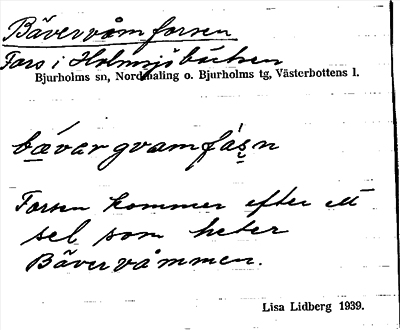 Bävervåmforsen
Fors i Holmsjöbäcken
Bjurholms sn, Nordmaling o. Bjurholms tg, Västerbottens l.
bævargvamfásn
Forsen kommer efter ett
sel som heter
Bävervåmmen.
Lisa Lidberg 1939.